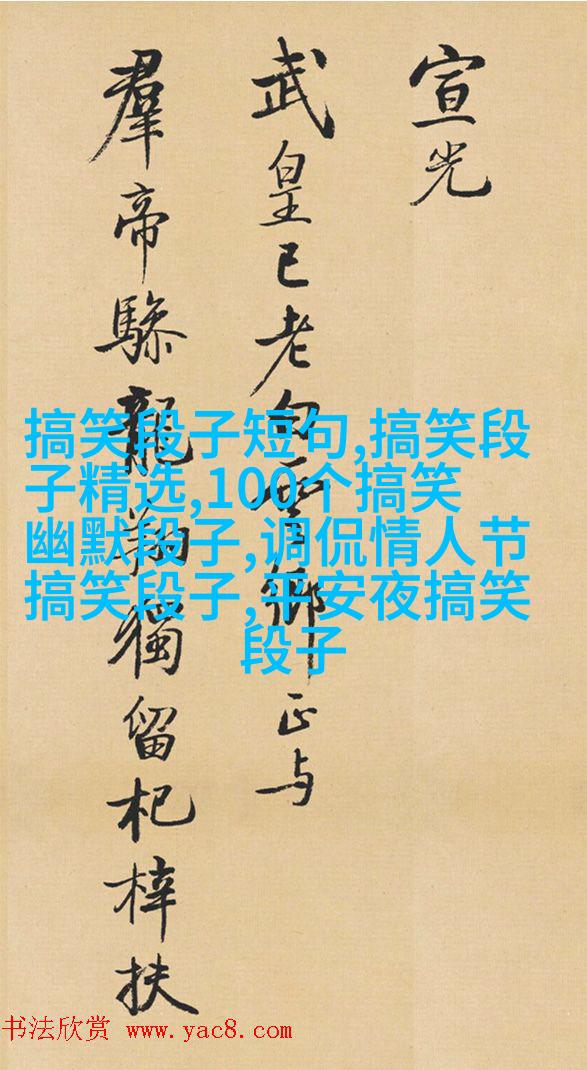 宣光
武皇已老白雲鄉正与
羣帝驂龍翔獨留杞梓扶
搞笑段子短句,搞笑段
子精选,100个搞笑
幽默段子,调侃情人节
搞笑段子,平安夜搞笑
段子
书法欣赏 www.yac8.com